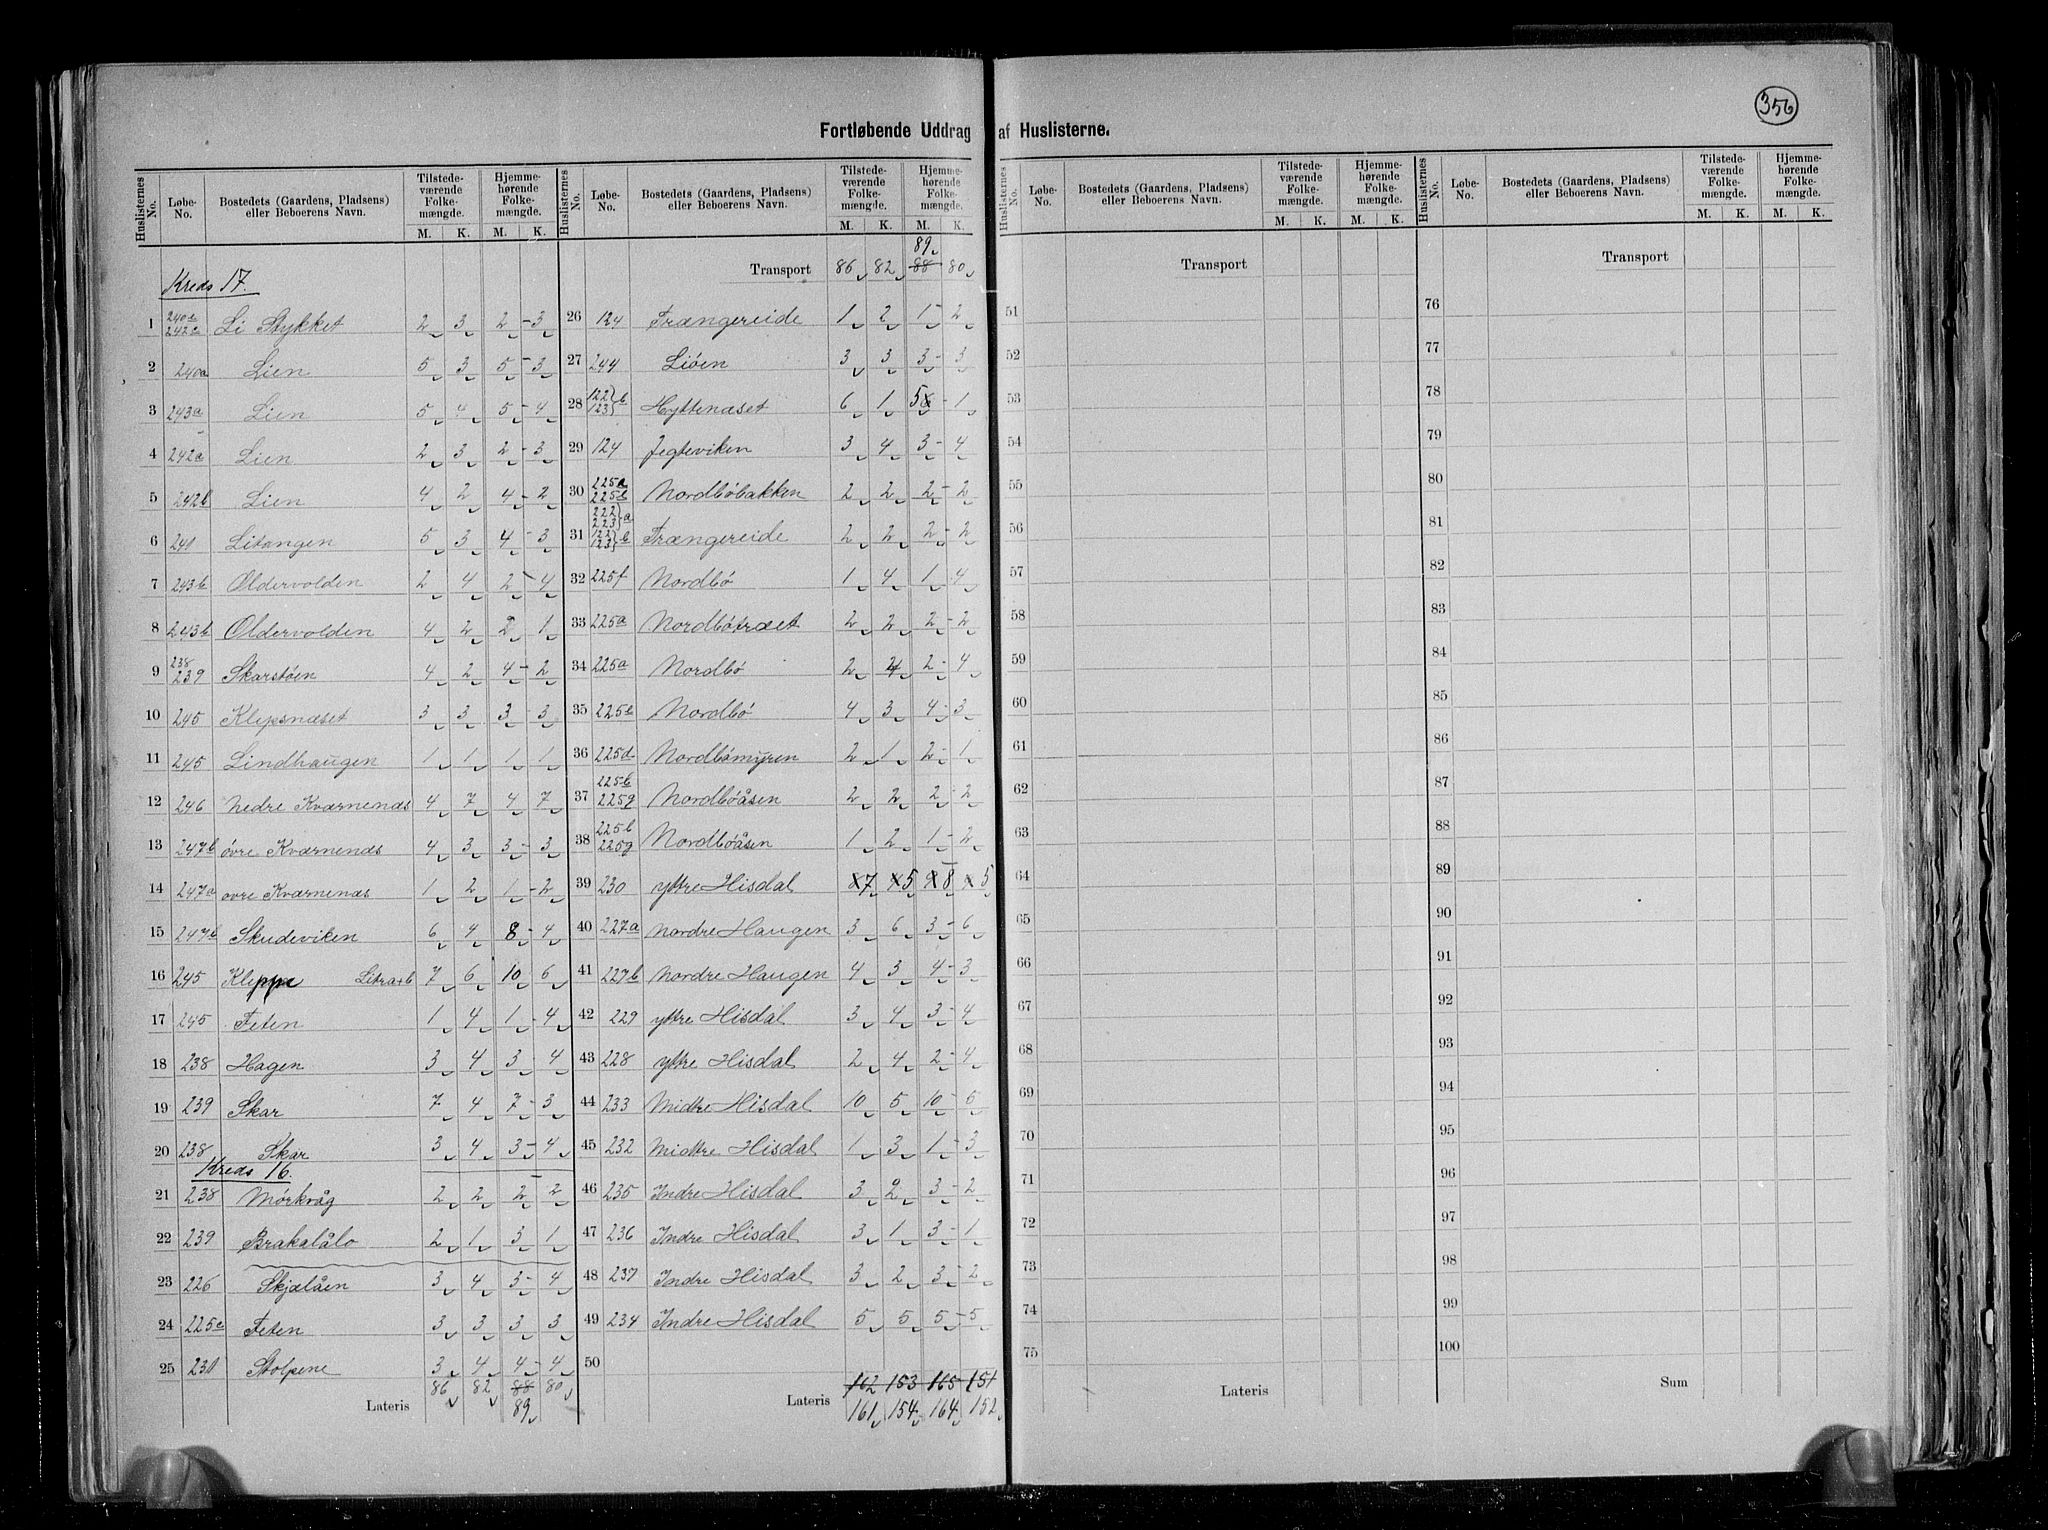 356
Fortløbende Uddrag af Huslisterne.
Huslisternes No. | Løbe-No. | Bostedets (Gaardens, Pladsens) eller Beboerens Navn. | Tilstedeværende Folkemængde. M. K. | Hjemmehørende Folkemængde. M. K.
Kreds 17.
1 240e 242e Li Stykket 2 3 2 - 3
2 240a Lien 5 3 5 - 3
3 243a Lien 5 4 5 - 4
4 242a Lien 2 3 2 - 3
5 242b Lien 4 2 4 - 2
6 241 Litangen 5 3 4 - 3
7 243b Oldervolden 2 4 2 - 4
8 243b Oldervolden 4 2 2 1
9 238 239 Skarstøen 4 2 4 - 2
10 245 Klepsnæset 3 3 3 - 3
11 245 Lindhaugen 1 1 1 1
12 246 Nedre Kværnenæs 4 7 4 7
13 247b øvre Kværnenæs 4 3 3 - 3
14 247a øvre Kværnenæs 1 2 1 - 2
15 247b Skudeviken 6 4 8 - 4
16 245 Kleppe Litra a+b 7 6 10 6
17 245 Feten 1 4 1 - 4
18 238 Hagen 3 4 3 - 4
19 239 Skar 7 4 7 - 3
20 238 Skar 3 4 3 - 4
Kreds 16.
21 238 Mørkråg 2 2 2 2
22 239 Brakalålo 2 1 3 1
23 226 Skjælåen 3 4 3 - 4
24 225c Feten 3 3 3 3
25 231 Stolpene 3 4 4 - 4
Lateris 86 82 88 80
89
Huslisternes No. | Løbe-No. | Bostedets (Gaardens, Pladsens) eller Beboerens Navn. | Tilstedeværende Folkemængde. M. K. | Hjemmehørende Folkemængde. M. K.
89
Transport 86 82 88 80
26 124 Trængereide 1 2 1 - 2
27 244 Liøen 3 3 3 - 3
28 122 123 b Hyttenæset 6 1 5 - 1
29 124 Jegteviken 3 4 3 - 4
30 225a 225e Nordbøbakken 2 2 2 - 2
31 222 223 a 122 123 b Trængereide 2 2 2 - 2
32 225f Nordbø 1 4 1 4
33 225a Nordbøtræet 2 2 2 - 2
34 225a Nordbø 2 4 2 - 4
35 225e Nordbø 4 3 4 - 3
36 225d Nordbømyren 2 1 2 - 1
37 225b 225g Nordbøåsen 2 2 2 - 2
38 225b 225g Nordbøåsen 1 2 1 - 2
39 230 yttre Hisdal 7 5 8 5
40 227a Nordre Haugen 3 6 3 - 6
41 227b Nordre Haugen 4 3 4 - 3
42 229 yttre Hisdal 3 4 3 - 4
43 228 yttre Hisdal 2 4 2 - 4
44 233 Midtre Hisdal 10 5 10 - 6
45 232 Midtre Hisdal 1 3 1 - 3
46 235 Indre Hisdal 3 2 3 - 2
47 236 Indre Hisdal 3 1 3 - 1
48 237 Indre Hisdal 3 2 3 - 2
49 234 Indre Hisdal 5 5 5 - 5
50
162 153 165 151
Lateris 161 154 164 152
Huslisternes No. | Løbe-No. | Bostedets (Gaardens, Pladsens) eller Beboerens Navn. | Tilstedeværende Folkemængde. M. K. | Hjemmehørende Folkemængde. M. K.
Transport
51
52
53
54
55
56
57
58
59
60
61
62
63
64
65
66
67
68
69
70
71
72
73
74
75
Lateris
Huslisternes No. | Løbe-No. | Bostedets (Gaardens, Pladsens) eller Beboerens Navn. | Tilstedeværende Folkemængde. M. K. | Hjemmehørende Folkemængde. M. K.
Transport
76
77
78
79
80
81
82
83
84
85
86
87
88
89
90
91
92
93
94
95
96
97
98
99
100
Sum